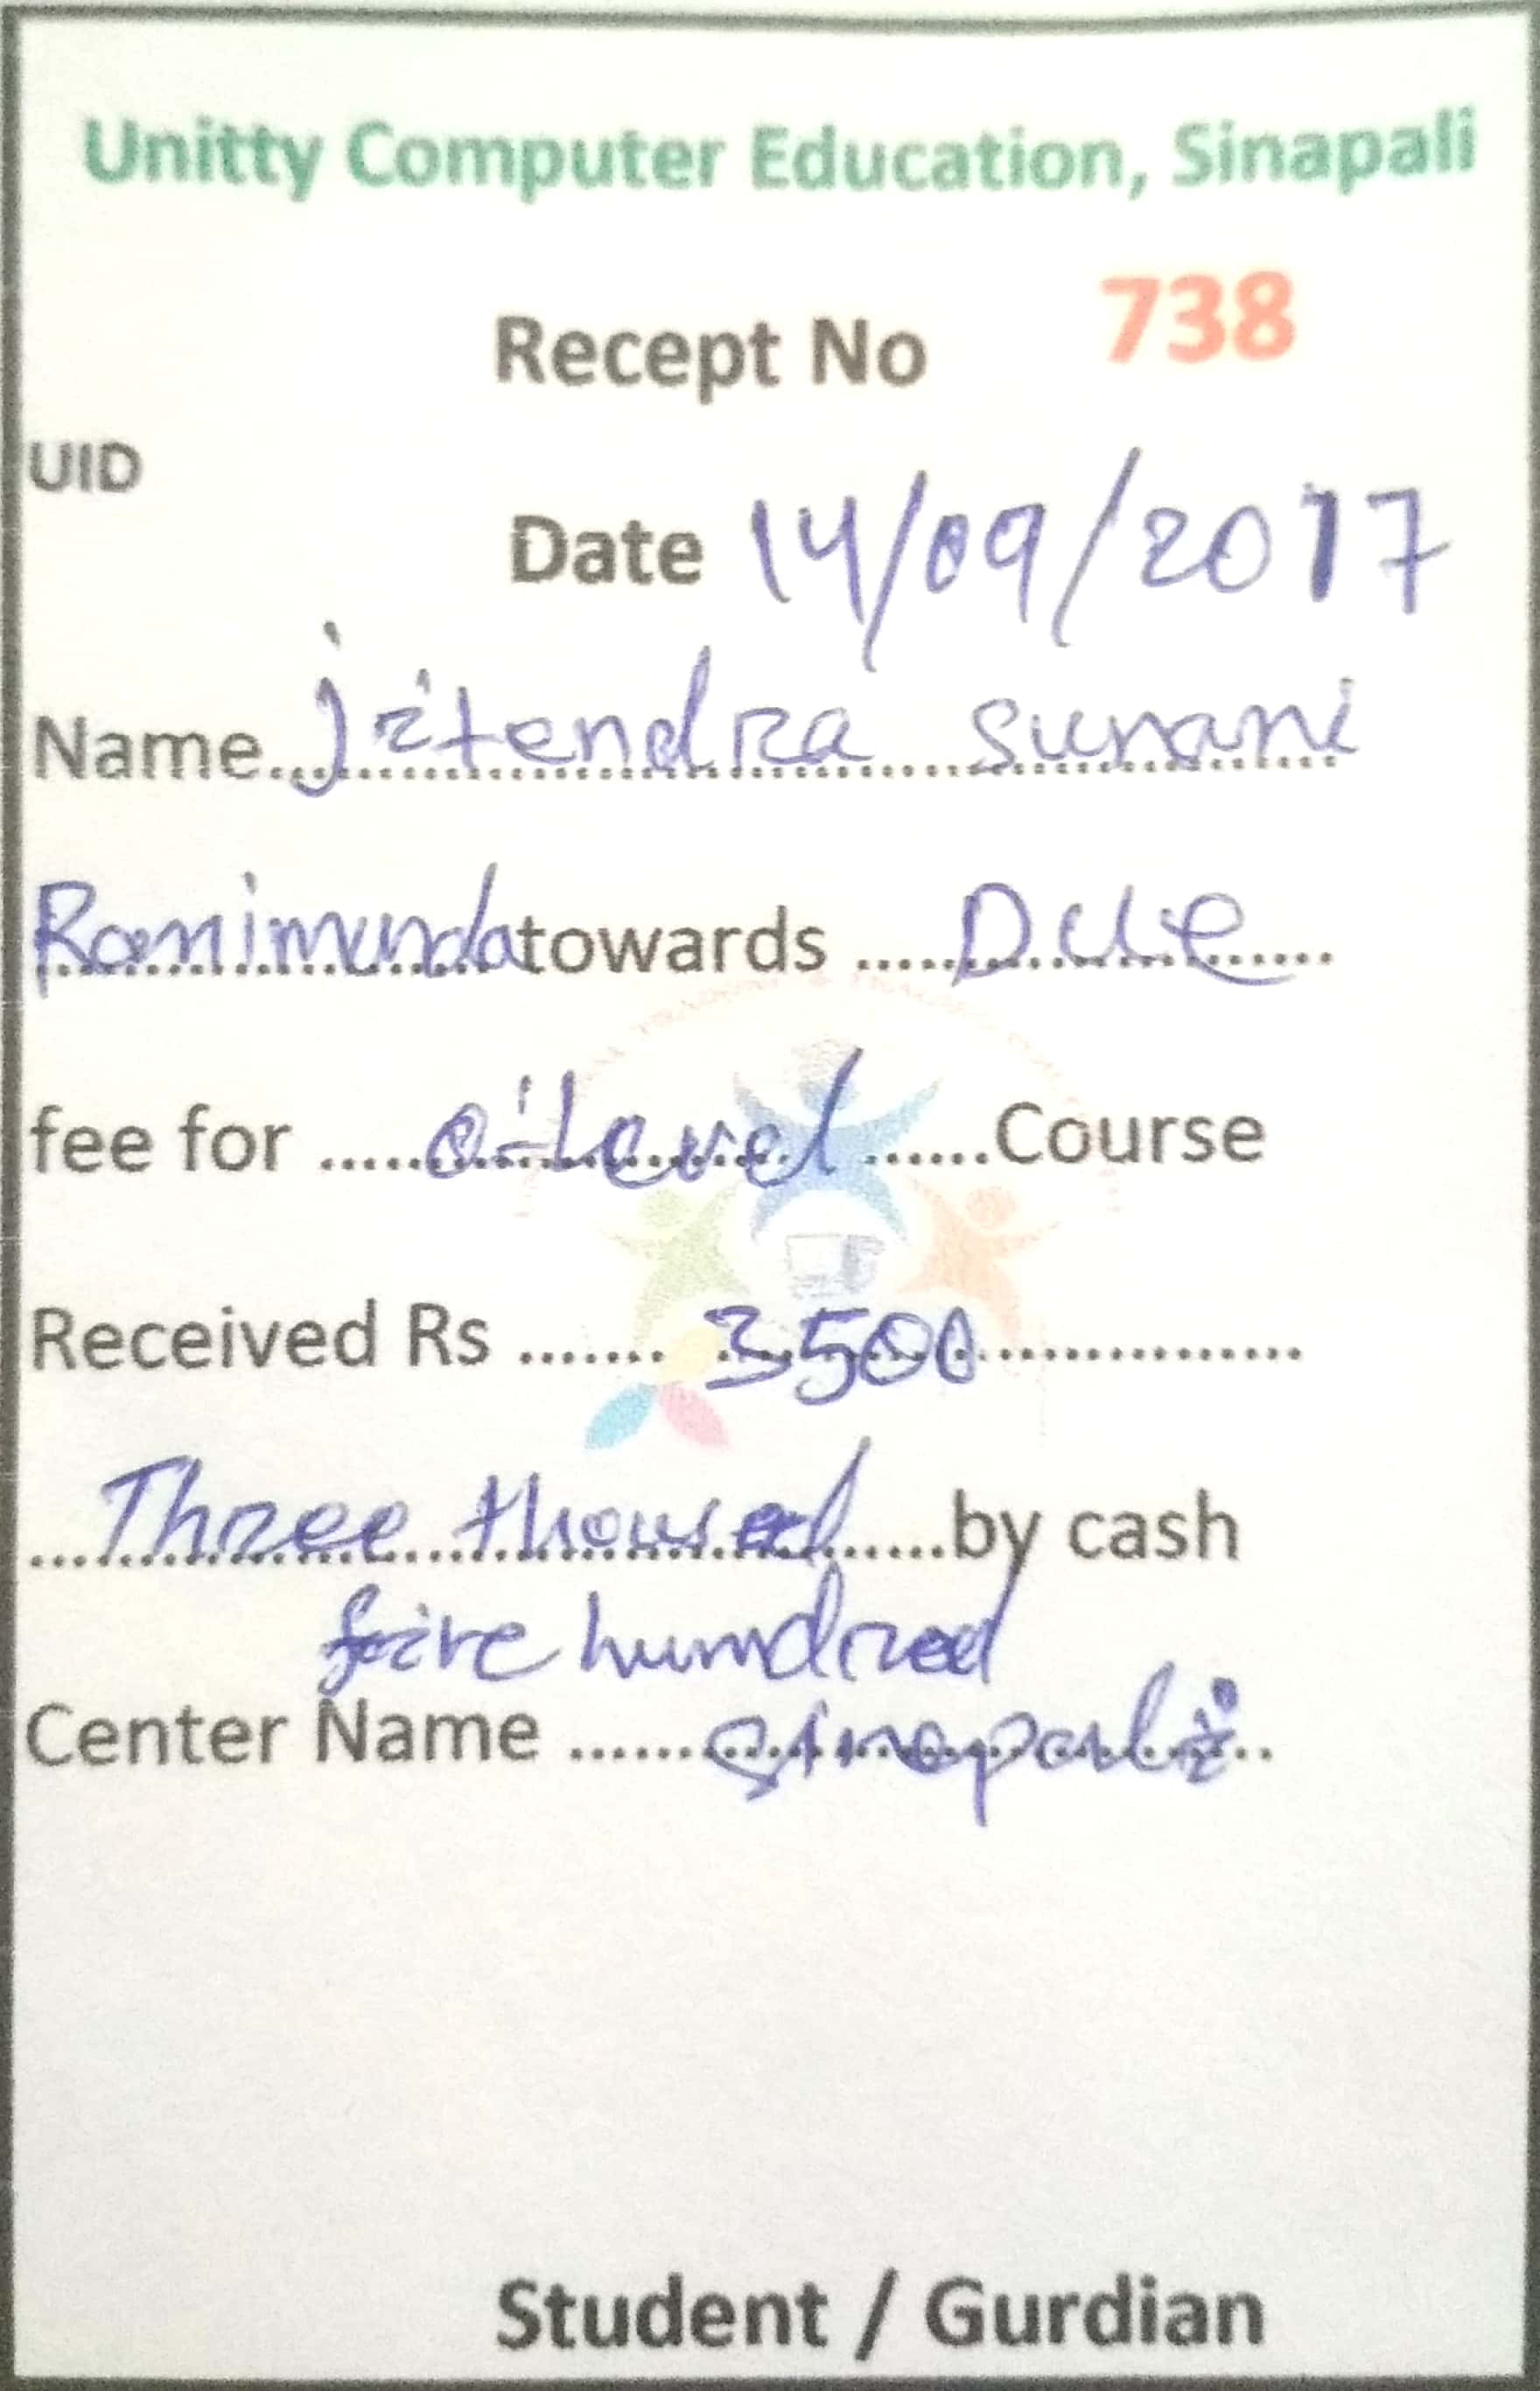 Unitty Computer Education, Sinapali
Recept No 738
UID
Date 14/09/2017
Name jitendra sunani
Ranimunda towards Due
fee for o'Level Course
Received Rs 3500
Three thousad by cash
five hundred
Center Name sinapali
Student / Gurdian